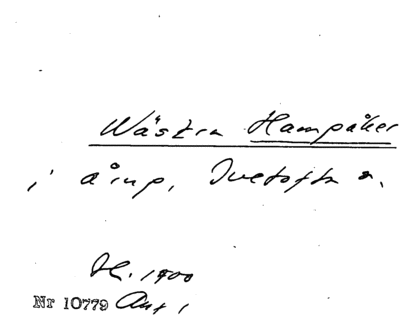 Wästra Hampåker
i åinp, Ivetofta s.
H. 1900
Nr 10779 Ant 1